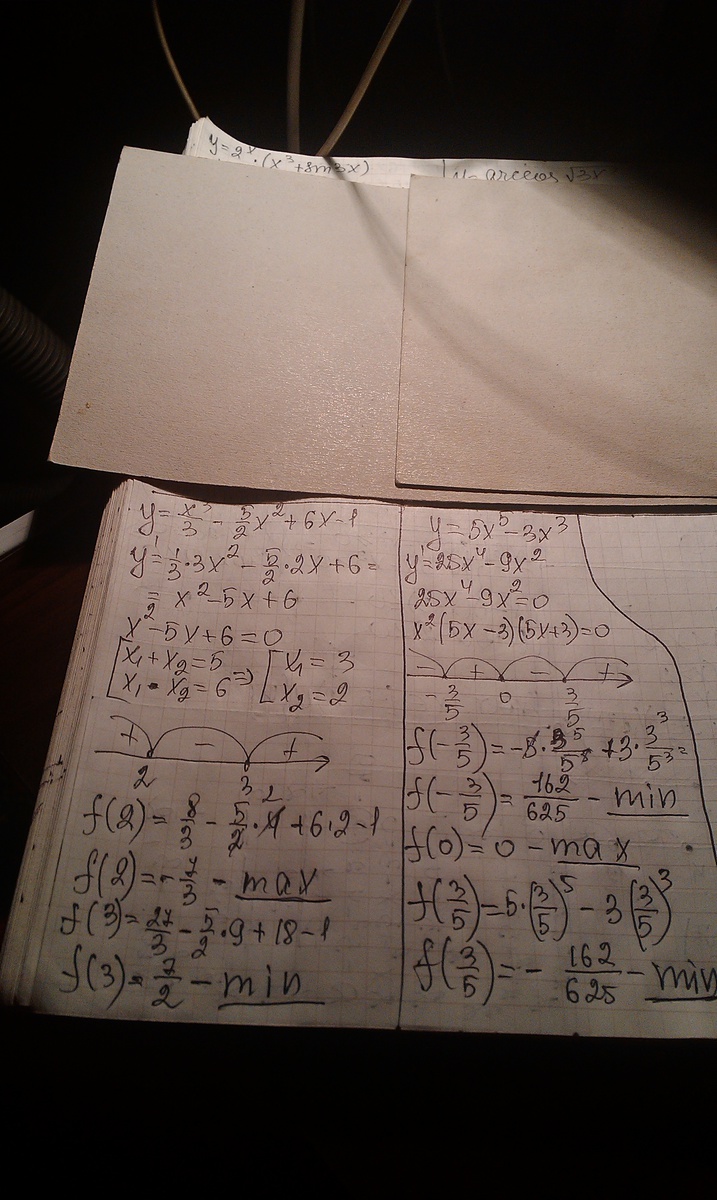 y=2^x·(x³+sin3x)
y=arccos √3x
y=x³/3 - 5/2x²+6x-1
y'=1/3·3x²-5/2·2x+6=
= x²-5x+6
x²-5x+6=0
[x₁+x₂=5
x₁·x₂=6 => [x₁=3
x₂=2
+ - +
2 3
f(2)=8/3-5/2·4+6·2-1
f(2)=
- max
f(3)=27/3-5/2·9+18-1
f(3)=7/2 - min
y=5x⁵-3x³
y'=25x⁴-9x²
25x⁴-9x²=0
x²(5x-3)(5x+3)=0
- + - +
-3/5 0 3/5
f(-3/5)=-5·3⁵/5⁵+3·3³/5³=
f(-3/5)=162/625 - min
f(0)=0 - max
f(3/5)=5·(3/5)⁵-3(3/5)³
f(3/5)=-162/625 - min